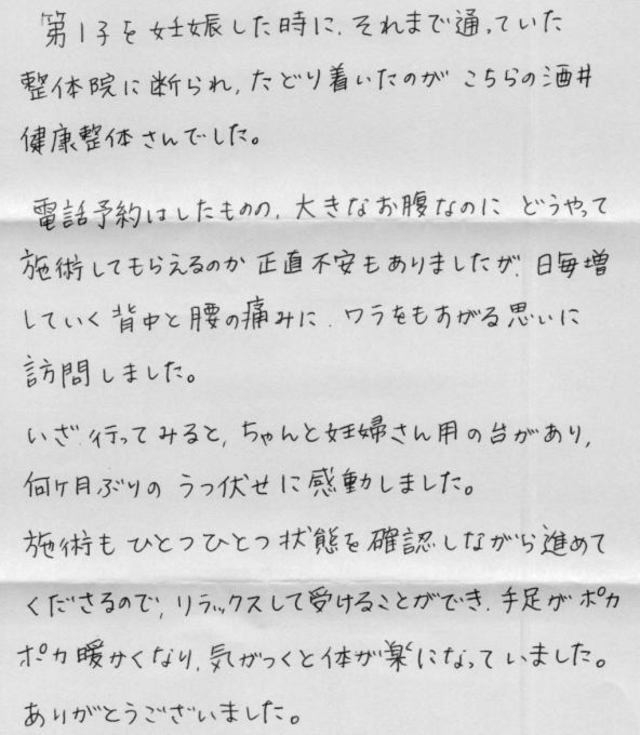 第1子を妊娠した時に、それまで通っていた
整体院に断られ、たどり着いたのが こちらの酒井
健康整体さんでした。
電話予約はしたものの、大きなお腹なのに どうやって
施術してもらえるのか 正直不安もありましたが、日毎増
していく背中と腰の痛みに、ワラをもすがる思いに
訪問しました。
いざ行ってみると、ちゃんと妊婦さん用の台があり、
何ケ月ぶりの うつ伏せに感動しました。
施術も ひとつひとつ状態を確認しながら進めて
くださるので、リラックスして受けることができ、手足がポカ
ポカ暖かくなり、気がつくと体が楽になっていました。
ありがとうございました。